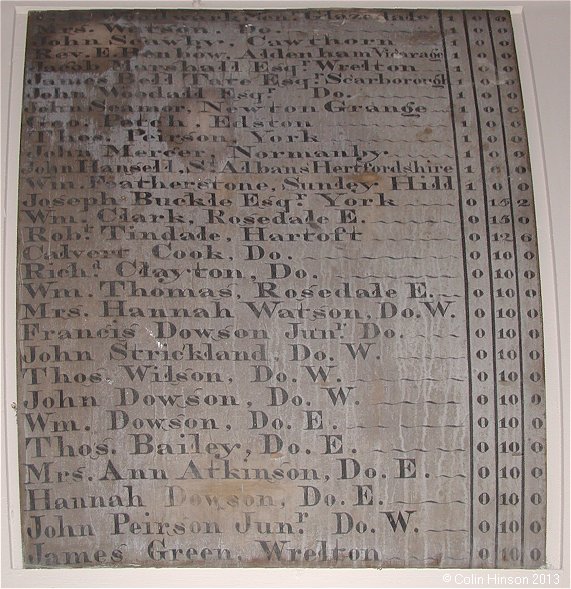 Mrs. Watson, Do. 1 0 0
John Scawby, Cawthorn 1 0 0
Rev. E. Benlow, Aldenham Vicarage 1 0 0
Jacob Marshall Esqr. Wrelton 1 0 0
James Bell Tate Esqr. Scarborough 1 0 0
John Woodall Esqr. Do. 1 0 0
John Seamer, Newton Grange 1 0 0
Geo. Petch, Edston 1 0 0
Thos. Peirson, York 1 0 0
John Mercer, Normanby. 1 0 0
John Hansell, St. Albans Hertfordshire 1 0 0
Wm. Featherstone, Sunley Hill 1 0 0
Joseph Buckle Esqr. York 0 15 2
Wm. Clark, Rosedale E. 0 15 0
Robt. Tindale, Hartoft 0 12 6
Calvert Cook, Do. 0 10 0
Richd. Clayton, Do. 0 10 0
Wm. Thomas, Rosedale E. 0 10 0
Mrs. Hannah Watson, Do. W. 0 10 0
Francis Dowson Junr. Do. 0 10 0
John Strickland, Do. W. 0 10 0
Thos. Wilson, Do. W. 0 10 0
John Dowson, Do. W. 0 10 0
Wm. Dowson, Do. E. 0 10 0
Thos. Bailey, Do. E. 0 10 0
Mrs. Ann Atkinson, Do. E. 0 10 0
Hannah Dowson, Do. E. 0 10 0
John Peirson Junr. Do. W. 0 10 0
James Green, Wrelton 0 10 0
© Colin Hinson 2013